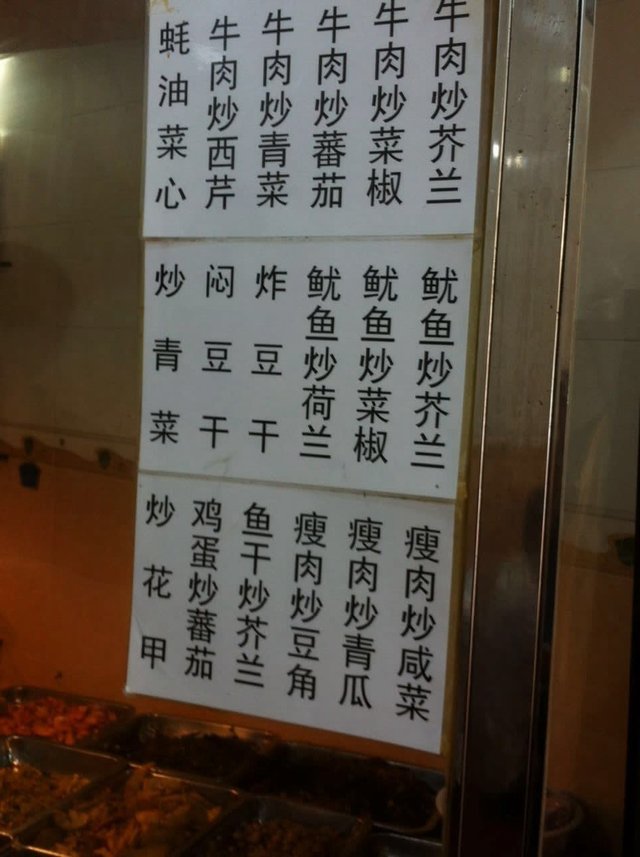 牛肉炒芥兰
牛肉炒菜椒
牛肉炒蕃茄
牛肉炒青菜
牛肉炒西芹
蚝油菜心
鱿鱼炒芥兰
鱿鱼炒菜椒
鱿鱼炒荷兰
炸豆干
闷豆干
炒青菜
瘦肉炒咸菜
瘦肉炒青瓜
瘦肉炒豆角
鱼干炒芥兰
鸡蛋炒蕃茄
炒花甲